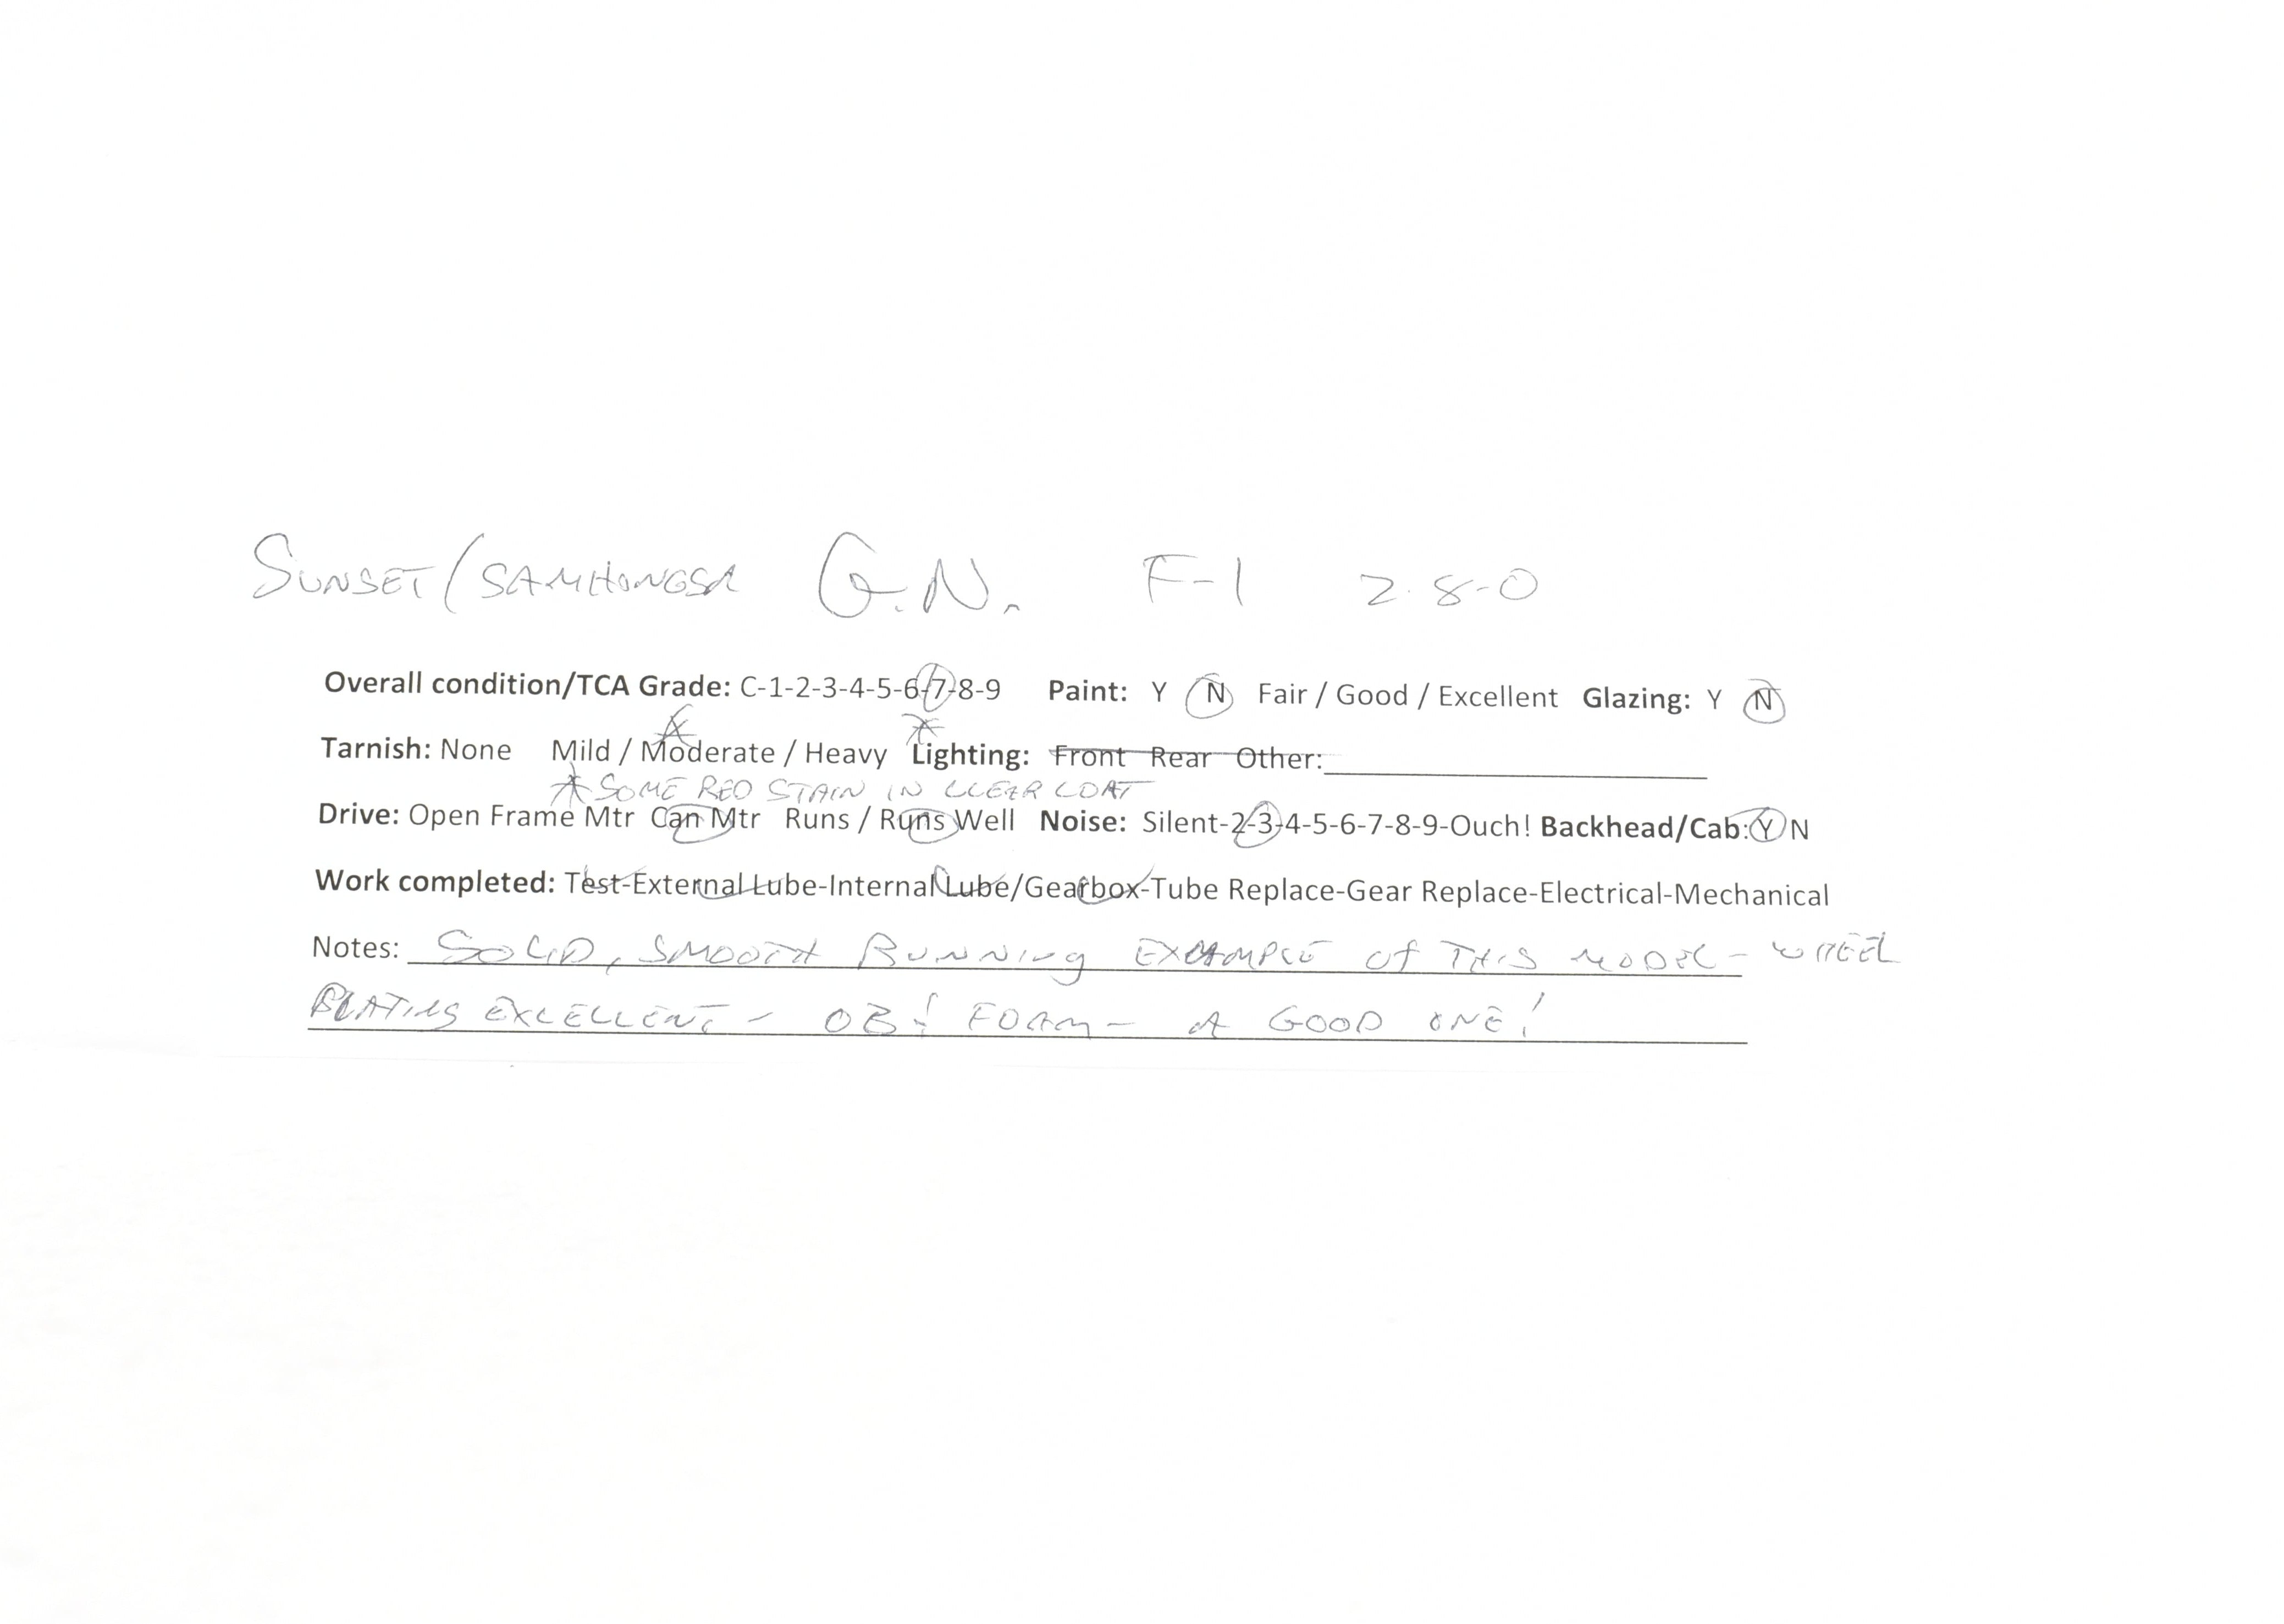 SUNSET/SAMHONGSA G.N. F-1 2-8-0
Overall condition/TCA Grade: C-1-2-3-4-5-6-7-8-9 Paint: Y N Fair / Good / Excellent Glazing: Y N
Tarnish: None Mild / Moderate / Heavy Lighting: Front Rear Other:
* SOME RED STAIN IN CLEAR COAT
Drive: Open Frame Mtr Can Mtr Runs / Runs Well Noise: Silent-2-3-4-5-6-7-8-9-Ouch! Backhead/Cab: Y N
Work completed: Test-External Lube-Internal Lube/Gearbox-Tube Replace-Gear Replace-Electrical-Mechanical
Notes: SOLID, SMOOTH RUNNING EXAMPLE OF THIS MODEL - WHEEL
PLATING EXCELLENT - OB & FOAM - A GOOD ONE!